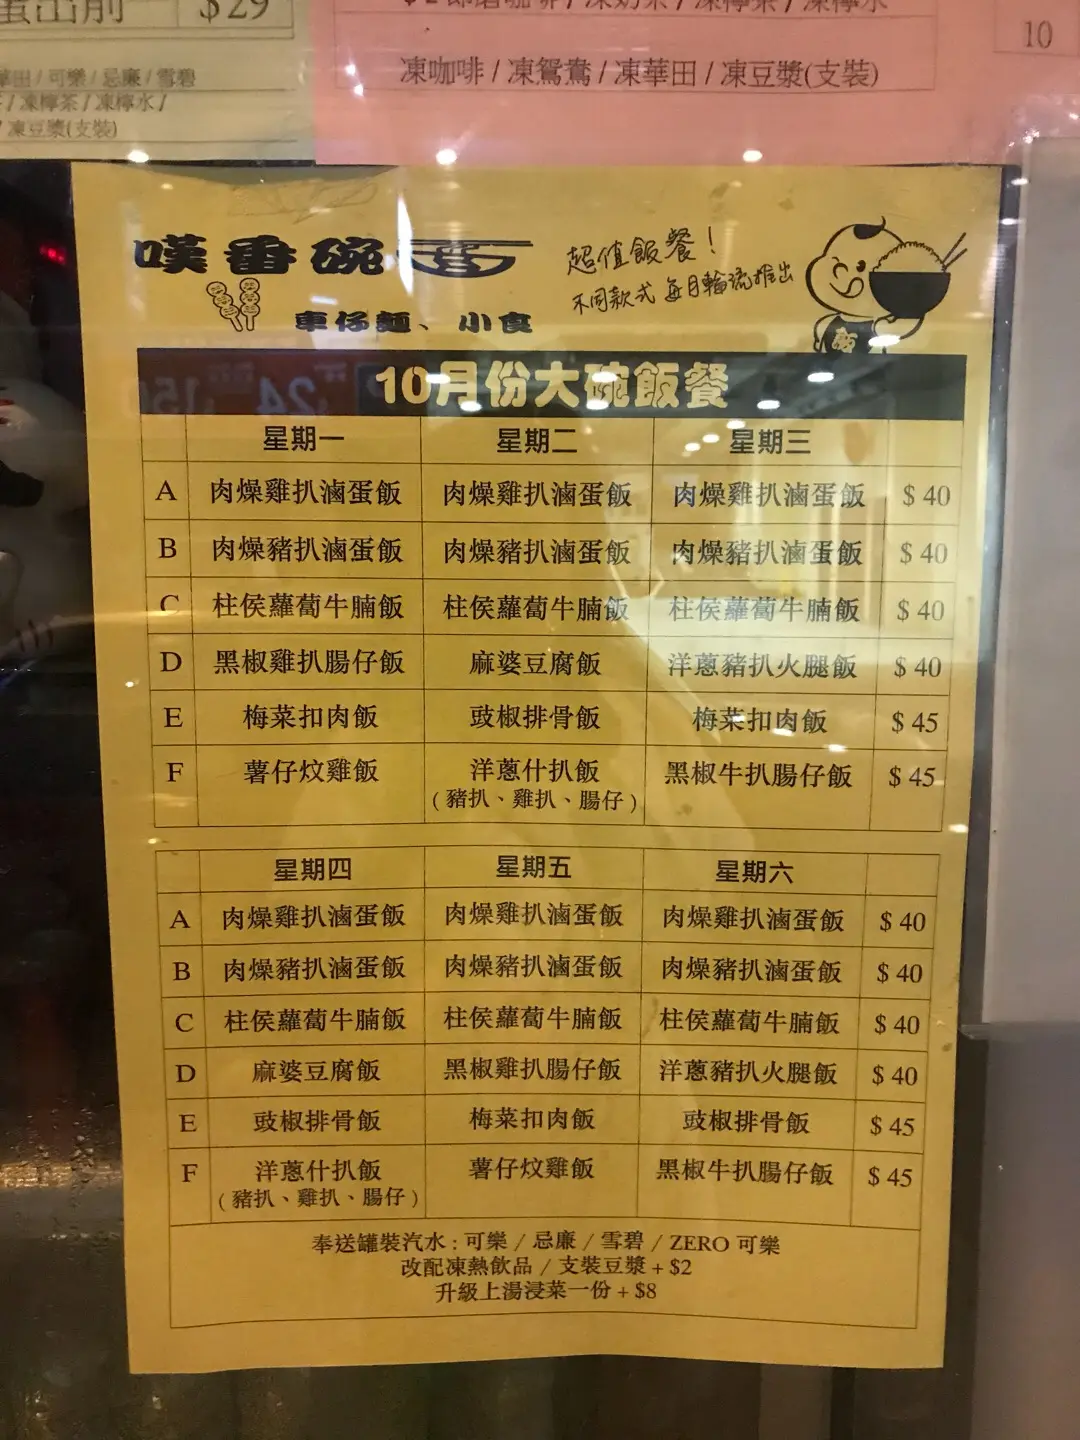 $29
華田 / 可樂 / 忌廉 / 雪碧
/ 凍檸茶 / 凍檸水 /
/ 凍豆漿(支裝)
凍咖啡 / 凍鴛鴦 / 凍華田 / 凍豆漿(支裝)
10
嘆番碗
車仔麵、小食
超值飯餐！
不同款式 每日輪流推出
飯
10月份大碗飯餐
星期一 星期二 星期三
A 肉燥雞扒滷蛋飯 肉燥雞扒滷蛋飯 肉燥雞扒滷蛋飯 $ 40
B 肉燥豬扒滷蛋飯 肉燥豬扒滷蛋飯 肉燥豬扒滷蛋飯 $ 40
C 柱侯蘿蔔牛腩飯 柱侯蘿蔔牛腩飯 柱侯蘿蔔牛腩飯 $ 40
D 黑椒雞扒腸仔飯 麻婆豆腐飯 洋蔥豬扒火腿飯 $ 40
E 梅菜扣肉飯 豉椒排骨飯 梅菜扣肉飯 $ 45
F 薯仔炆雞飯 洋蔥什扒飯 黑椒牛扒腸仔飯 $ 45
( 豬扒、雞扒、腸仔 )
星期四 星期五 星期六
A 肉燥雞扒滷蛋飯 肉燥雞扒滷蛋飯 肉燥雞扒滷蛋飯 $ 40
B 肉燥豬扒滷蛋飯 肉燥豬扒滷蛋飯 肉燥豬扒滷蛋飯 $ 40
C 柱侯蘿蔔牛腩飯 柱侯蘿蔔牛腩飯 柱侯蘿蔔牛腩飯 $ 40
D 麻婆豆腐飯 黑椒雞扒腸仔飯 洋蔥豬扒火腿飯 $ 40
E 豉椒排骨飯 梅菜扣肉飯 豉椒排骨飯 $ 45
F 洋蔥什扒飯 薯仔炆雞飯 黑椒牛扒腸仔飯 $ 45
( 豬扒、雞扒、腸仔 )
奉送罐裝汽水 : 可樂 / 忌廉 / 雪碧 / ZERO 可樂
改配凍熱飲品 / 支裝豆漿 + $2
升級上湯浸菜一份 + $8